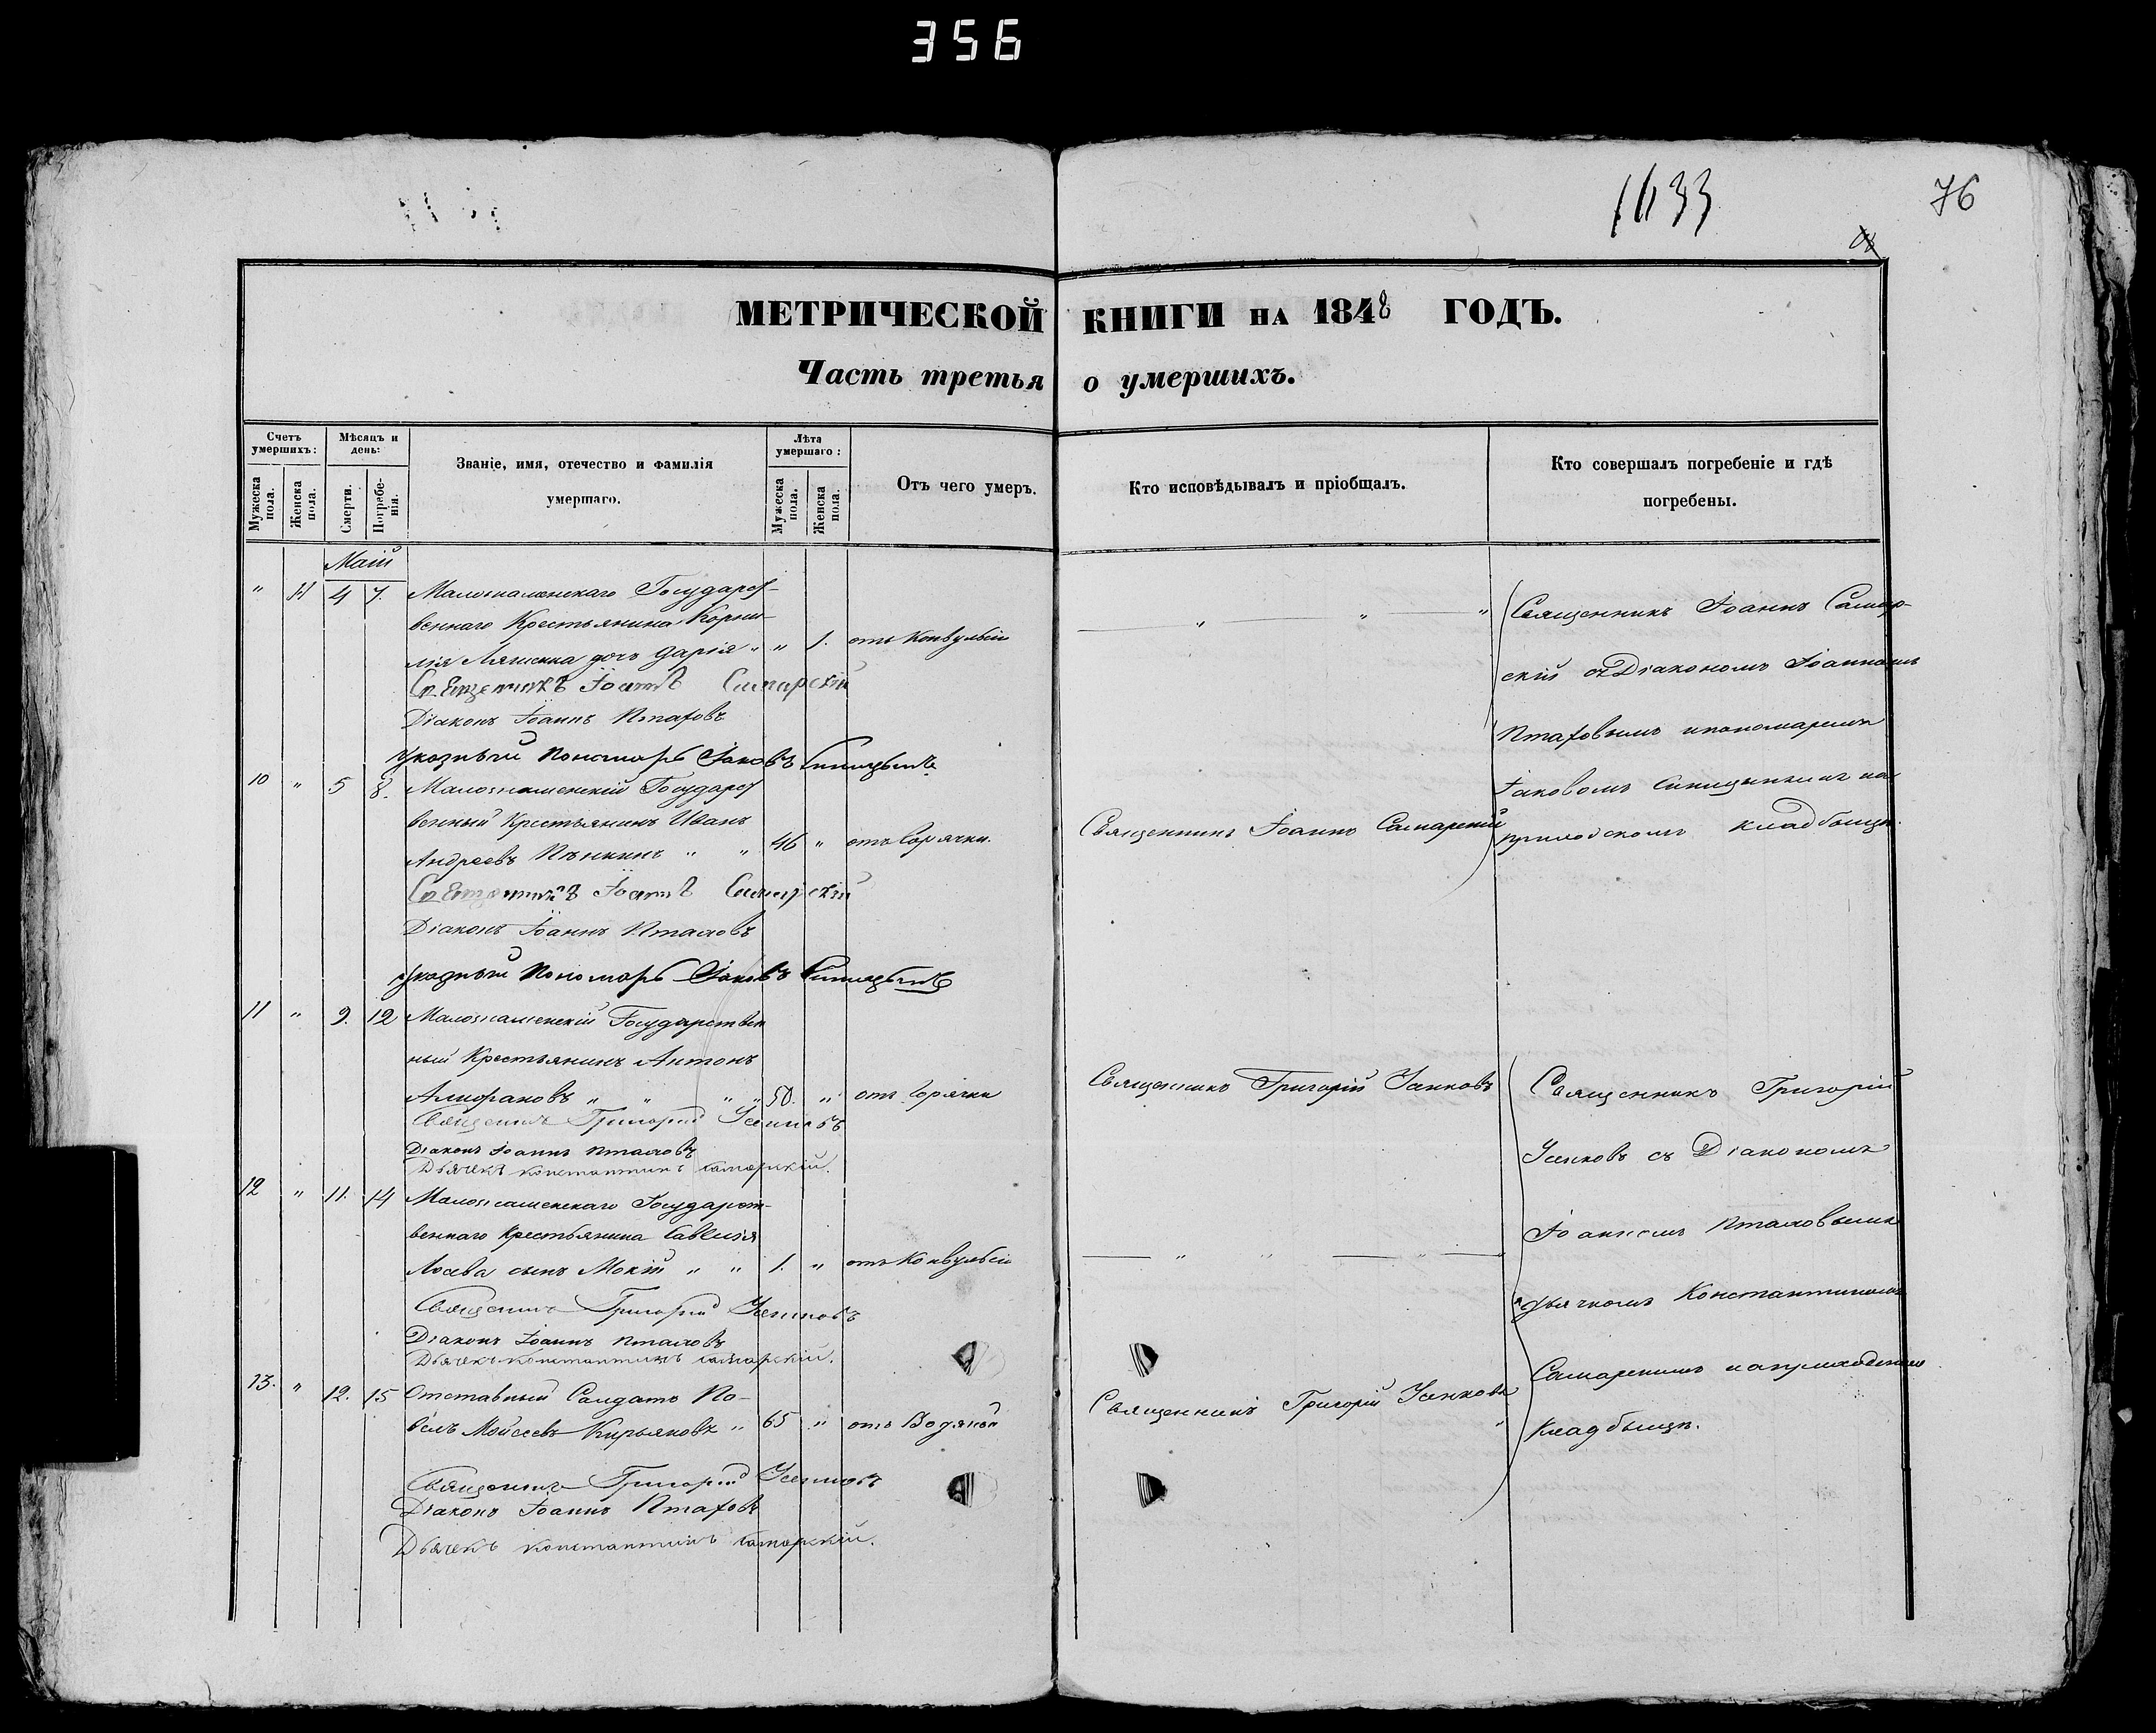 356
1633
76
МЕТРИЧЕСКОЙ КНИГИ НА 1848 ГОДЪ.
Часть третья о умершихъ.
Счетъ умершихъ:
Мужеска пола.
Женска пола.
Мѣсяцъ и день:
Смерти.
Погребенія.
Званіе, имя, отечество и фамилія
умершаго.
Лѣта умершаго:
Мужеска пола.
Женска пола.
Отъ чего умеръ.
Кто исповѣдывалъ и пріобщалъ.
Кто совершалъ погребеніе и гдѣ
погребены.
Маій
" 4 7. Малознаменскаго Государст-
веннаго Крестьянина Корни-
лія дочь Дарія " " 1. отъ Конвульсіи
Священникъ Іоаннъ Самарскій
Діаконъ Іоаннъ Птаховъ
Указный Пономарь Іаковъ Синицынъ
Священникъ Іоаннъ Самар-
скій съ Діакономъ Іоанномъ
Птаховымъ и пономаремъ
Іаковомъ Синицынымъ на
приходскомъ кладбищѣ.
10 " 5 8. Малознаменскій Государст
венный Крестьянинъ Иванъ
Андреевъ Пѣнкинъ " " 46 " отъ Горячки. Священникъ Іоаннъ Самарскій
Священникъ Іоаннъ Самарскій
Діаконъ Іоаннъ Птаховъ
Указный Пономарь Іаковъ Синицынъ
11 " 9. 12 Малознаменскій Государствен
ный Крестьянинъ Антонъ
" " " " 50. " отъ Горячки Священникъ Григорій Усенковъ
Священникъ Григорій Усенковъ
Діаконъ Іоаннъ Птаховъ
Дьячекъ Константинъ Самарскій.
Священникъ Григорій
Усенковъ съ Діакономъ
Іоанномъ Птаховымъ
и дьячкомъ Константиномъ
Самарскимъ на приходскомъ
кладбищѣ.
12 " 11. 14 Малознаменскаго Государст-
веннаго Крестьянина Савелія
Лосева сынъ Мокій " " 1. " отъ Конвульсіи
Священникъ Григорій Усенковъ
Діаконъ Іоаннъ Птаховъ
Дьячекъ Константинъ Самарскій.
13. " 12. 15 Отставный Салдатъ Па-
велъ Мойсеевъ Кирьяновъ " 65 " отъ Водяной Священникъ Григорій Усенковъ
Священникъ Григорій Усенковъ
Діаконъ Іоаннъ Птаховъ
Дьячекъ Константинъ Самарскій.